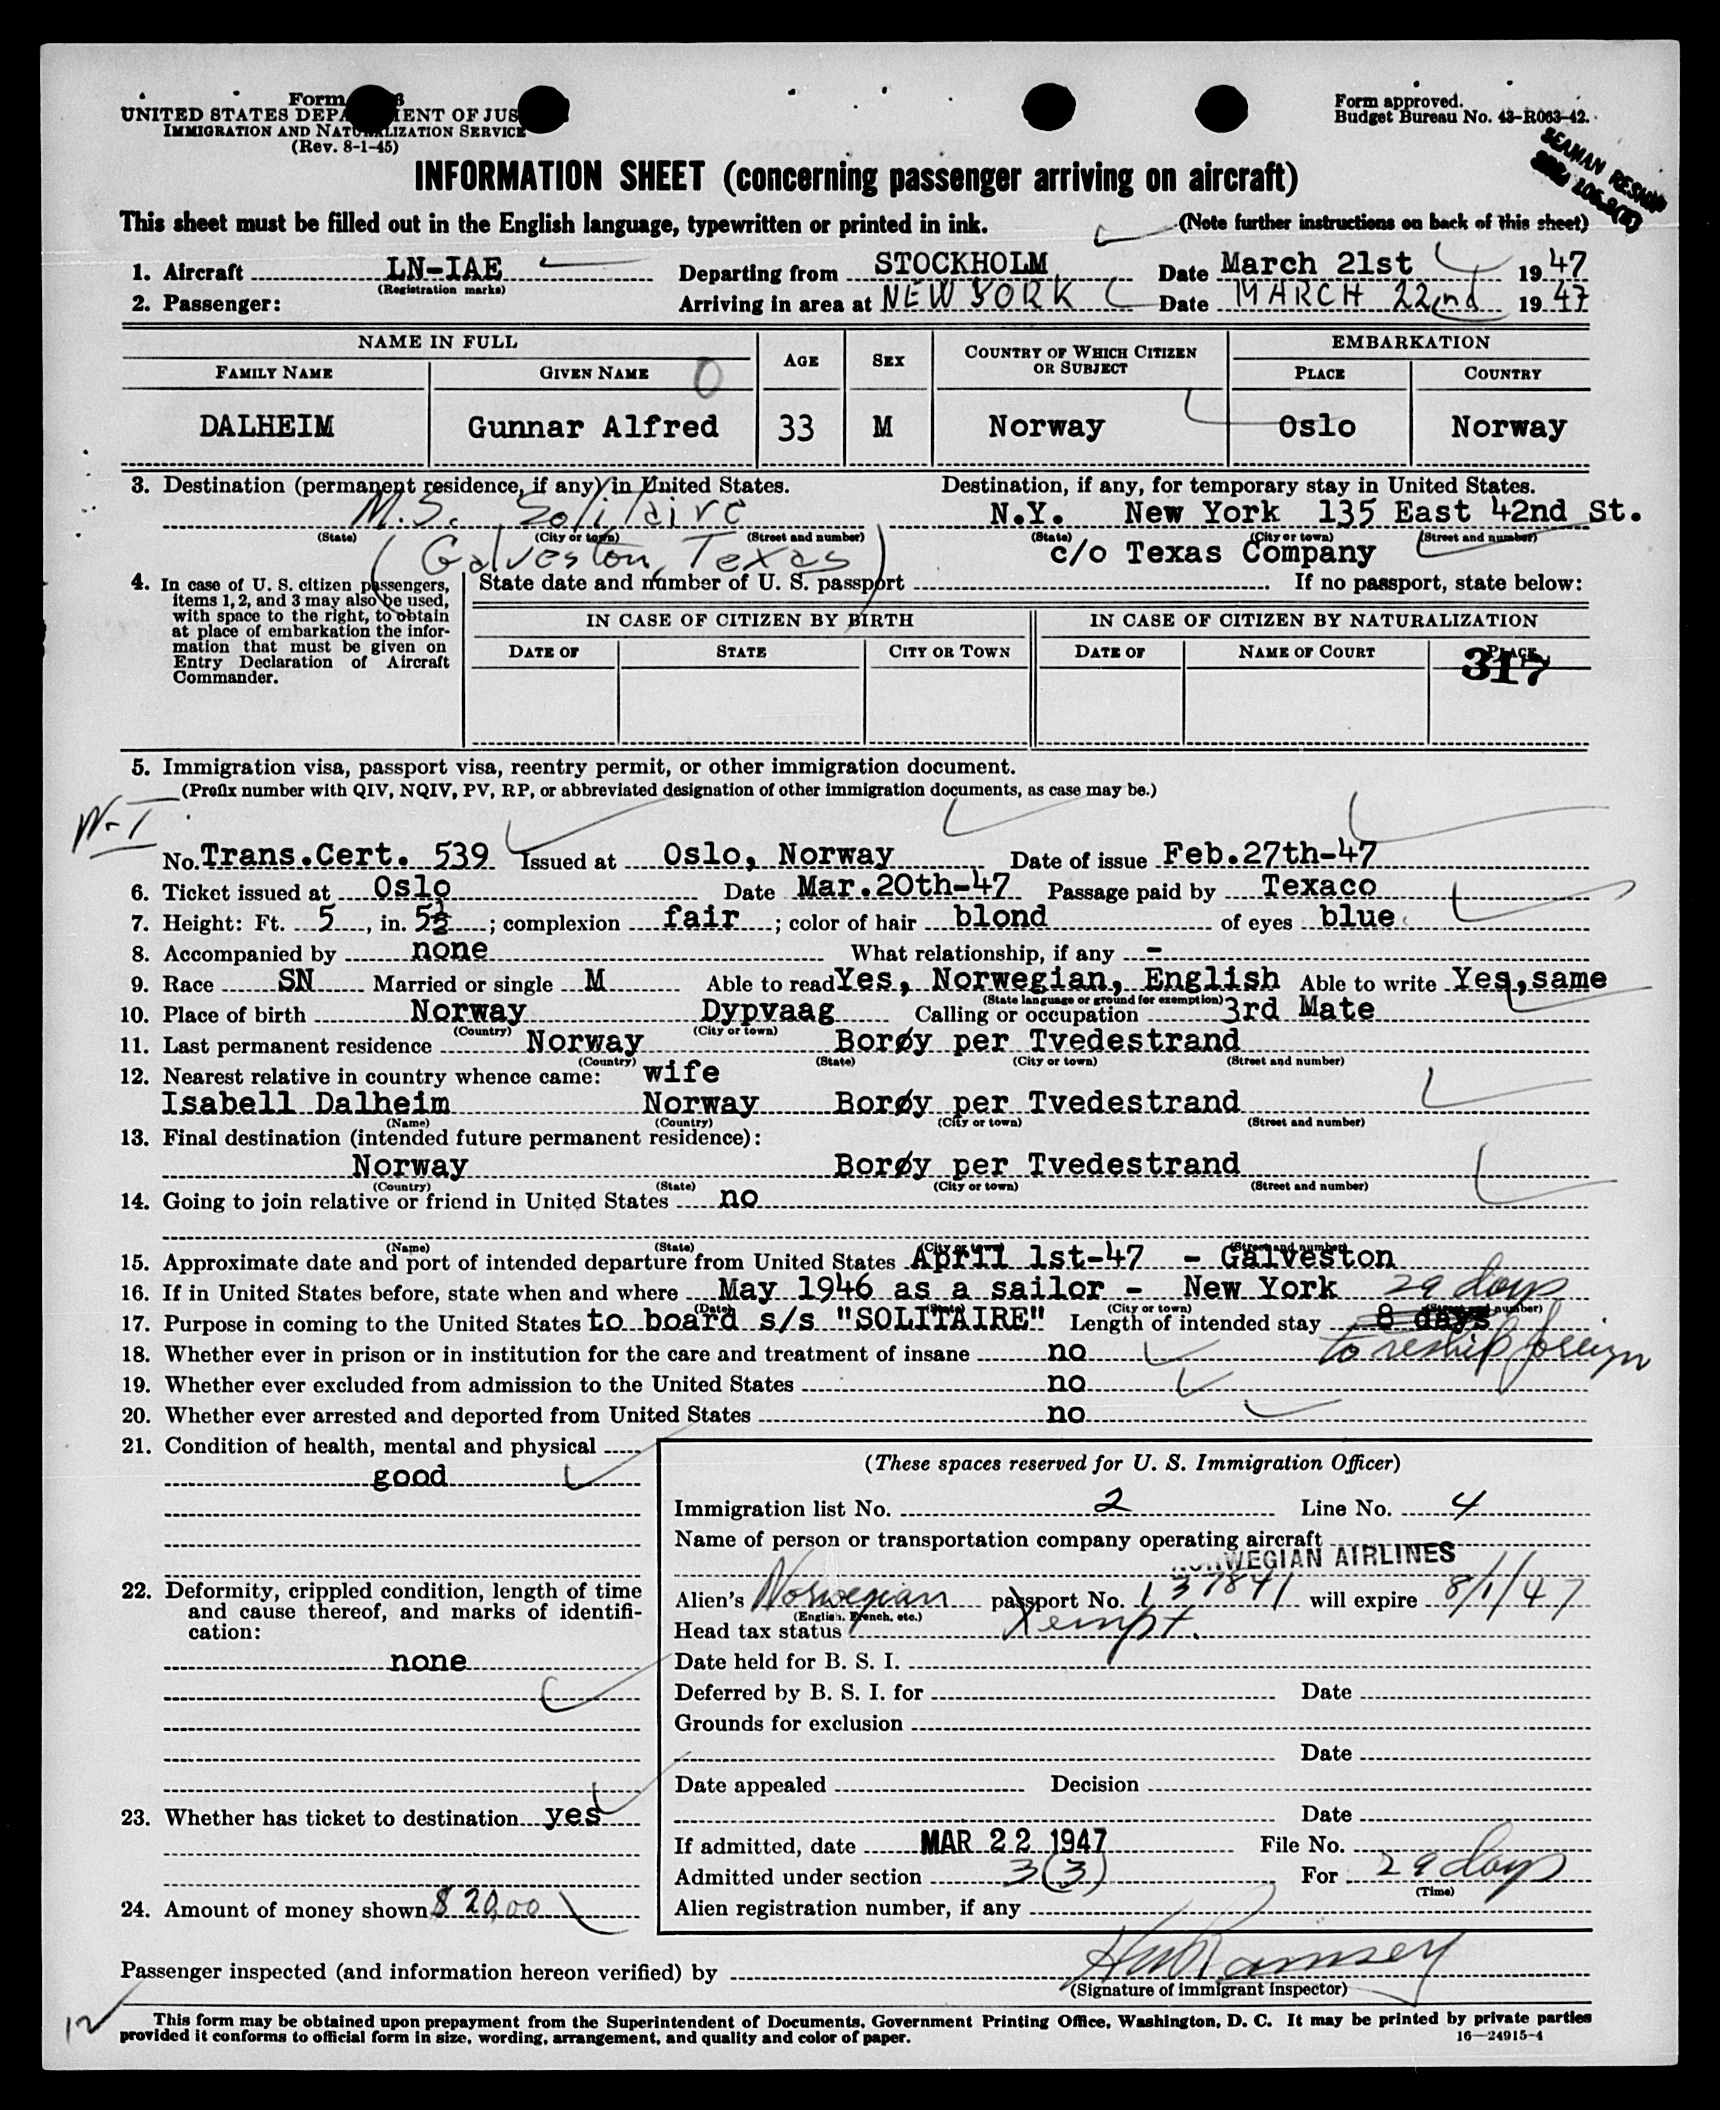 Form
UNITED STATES DEPA ENT OF JUS
IMMIGRATION AND NATURALIZATION SERVICE
(Rev. 8-1-45)
Form approved.
Budget Bureau No. 43-R063-42.
SEAMAN RESHIP
INFORMATION SHEET (concerning passenger arriving on aircraft)
This sheet must be filled out in the English language, typewritten or printed in ink. (Note further instructions on back of this sheet)
1. Aircraft LN-IAE Departing from STOCKHOLM Date March 21st 1947
(Registration marks)
2. Passenger: Arriving in area at NEW YORK Date MARCH 22nd 1947
NAME IN FULL AGE SEX COUNTRY OF WHICH CITIZEN OR SUBJECT EMBARKATION
FAMILY NAME GIVEN NAME PLACE COUNTRY
DALHEIM Gunnar Alfred 33 M Norway Oslo Norway
3. Destination (permanent residence, if any) in United States. Destination, if any, for temporary stay in United States.
M.S. Solitaire N.Y. New York 135 East 42nd St.
(State) (City or town) (Street and number) (State) (City or town) (Street and number)
(Galveston, Texas) c/o Texas Company
4. In case of U. S. citizen passengers, items 1, 2, and 3 may also be used, with space to the right, to obtain at place of embarkation the information that must be given on Entry Declaration of Aircraft Commander.
State date and number of U. S. passport If no passport, state below:
IN CASE OF CITIZEN BY BIRTH IN CASE OF CITIZEN BY NATURALIZATION
DATE OF STATE CITY OR TOWN DATE OF NAME OF COURT PLACE
317
5. Immigration visa, passport visa, reentry permit, or other immigration document.
(Prefix number with QIV, NQIV, PV, RP, or abbreviated designation of other immigration documents, as case may be.)
No. Trans.Cert. 539 Issued at Oslo, Norway Date of issue Feb.27th-47
6. Ticket issued at Oslo Date Mar.20th-47 Passage paid by Texaco
7. Height: Ft. 5, in. 5½; complexion fair; color of hair blond of eyes blue
8. Accompanied by none What relationship, if any -
9. Race SN Married or single M Able to read Yes, Norwegian, English Able to write Yes,same
(State language or ground for exemption)
10. Place of birth Norway Dypvaag Calling or occupation 3rd Mate
(Country) (City or town)
11. Last permanent residence Norway Borøy per Tvedestrand
(Country) (State) (City or town) (Street and number)
12. Nearest relative in country whence came: wife
Isabell Dalheim Norway Borøy per Tvedestrand
(Name) (Country) (City or town) (Street and number)
13. Final destination (intended future permanent residence):
Norway Borøy per Tvedestrand
(Country) (State) (City or town) (Street and number)
14. Going to join relative or friend in United States no
(Name) (State) (City or town) (Street and number)
15. Approximate date and port of intended departure from United States April 1st-47 - Galveston
16. If in United States before, state when and where May 1946 as a sailor - New York 29 days
(Date) (State) (City or town) (Street and number)
17. Purpose in coming to the United States to board s/s "SOLITAIRE" Length of intended stay 8 days
to reship foreign
18. Whether ever in prison or in institution for the care and treatment of insane no
19. Whether ever excluded from admission to the United States no
20. Whether ever arrested and deported from United States no
21. Condition of health, mental and physical
good
22. Deformity, crippled condition, length of time and cause thereof, and marks of identification:
none
23. Whether has ticket to destination yes
24. Amount of money shown $20.00
(These spaces reserved for U. S. Immigration Officer)
Immigration list No. 2 Line No. 4
Name of person or transportation company operating aircraft
NORWEGIAN AIRLINES
Alien's Norwegian passport No. 137841 will expire 8/1/47
(English, French, etc.)
Head tax status Xempt.
Date held for B. S. I.
Deferred by B. S. I. for Date
Grounds for exclusion
Date
Date appealed Decision
Date
If admitted, date MAR 22 1947 File No.
Admitted under section 3(3) For 29 days
(Time)
Alien registration number, if any
Passenger inspected (and information hereon verified) by
(Signature of immigrant inspector)
This form may be obtained upon prepayment from the Superintendent of Documents, Government Printing Office, Washington, D. C. It may be printed by private parties
provided it conforms to official form in size, wording, arrangement, and quality and color of paper. 16—24915-4